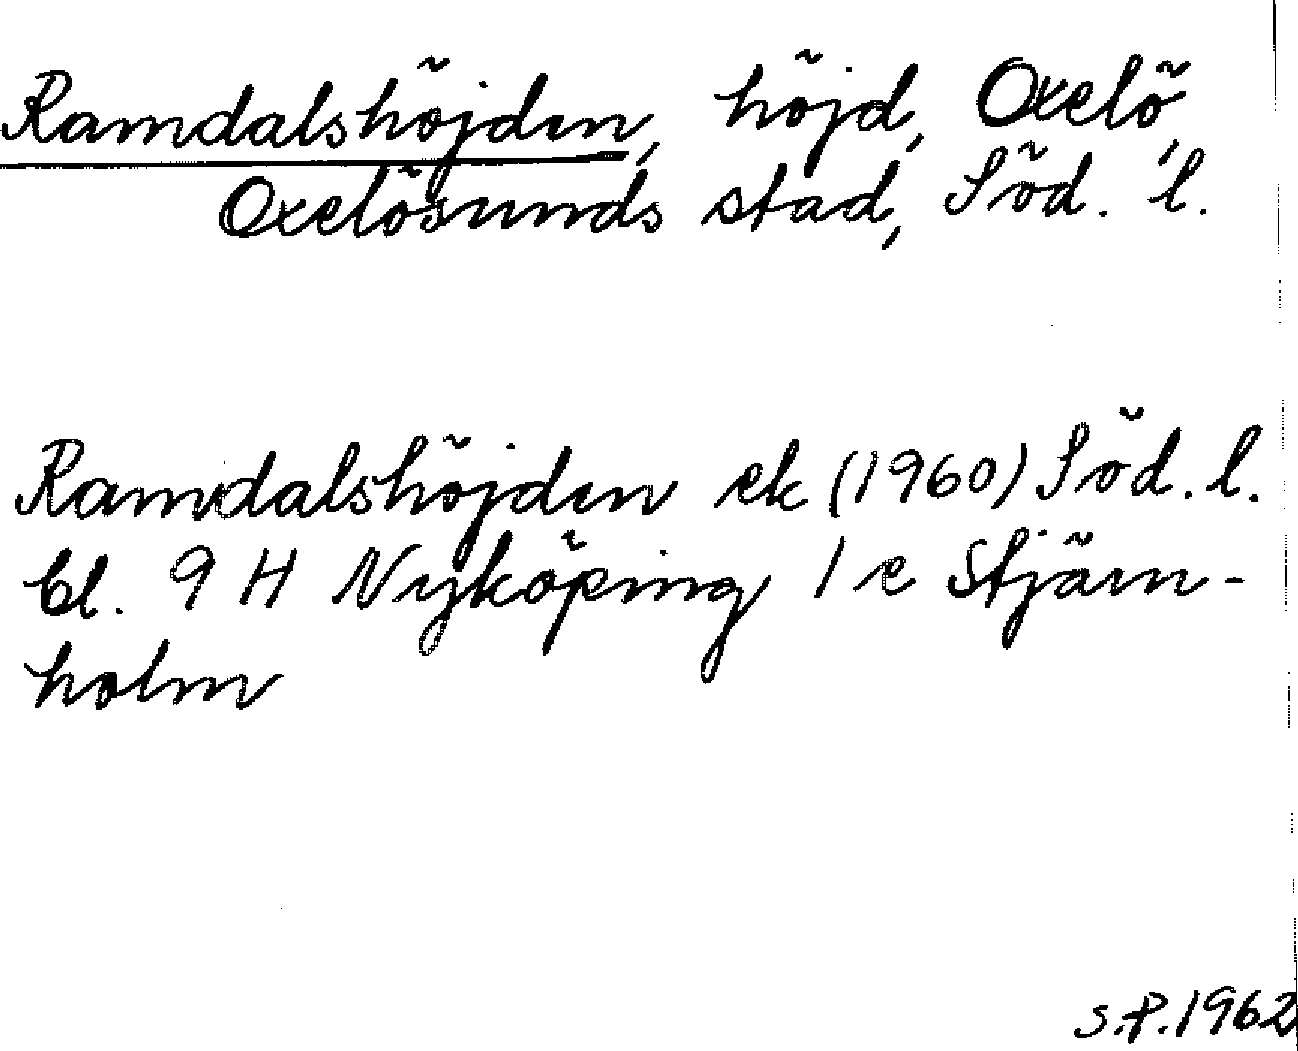 Ramdalshöjden, höjd, Oxelö,
Oxelösunds stad, Söd. l.
Ramdalshöjden ek (1960) Söd. l.
bl. 9 H Nyköping 1 e Stjärn-
holm
S.P. 1962